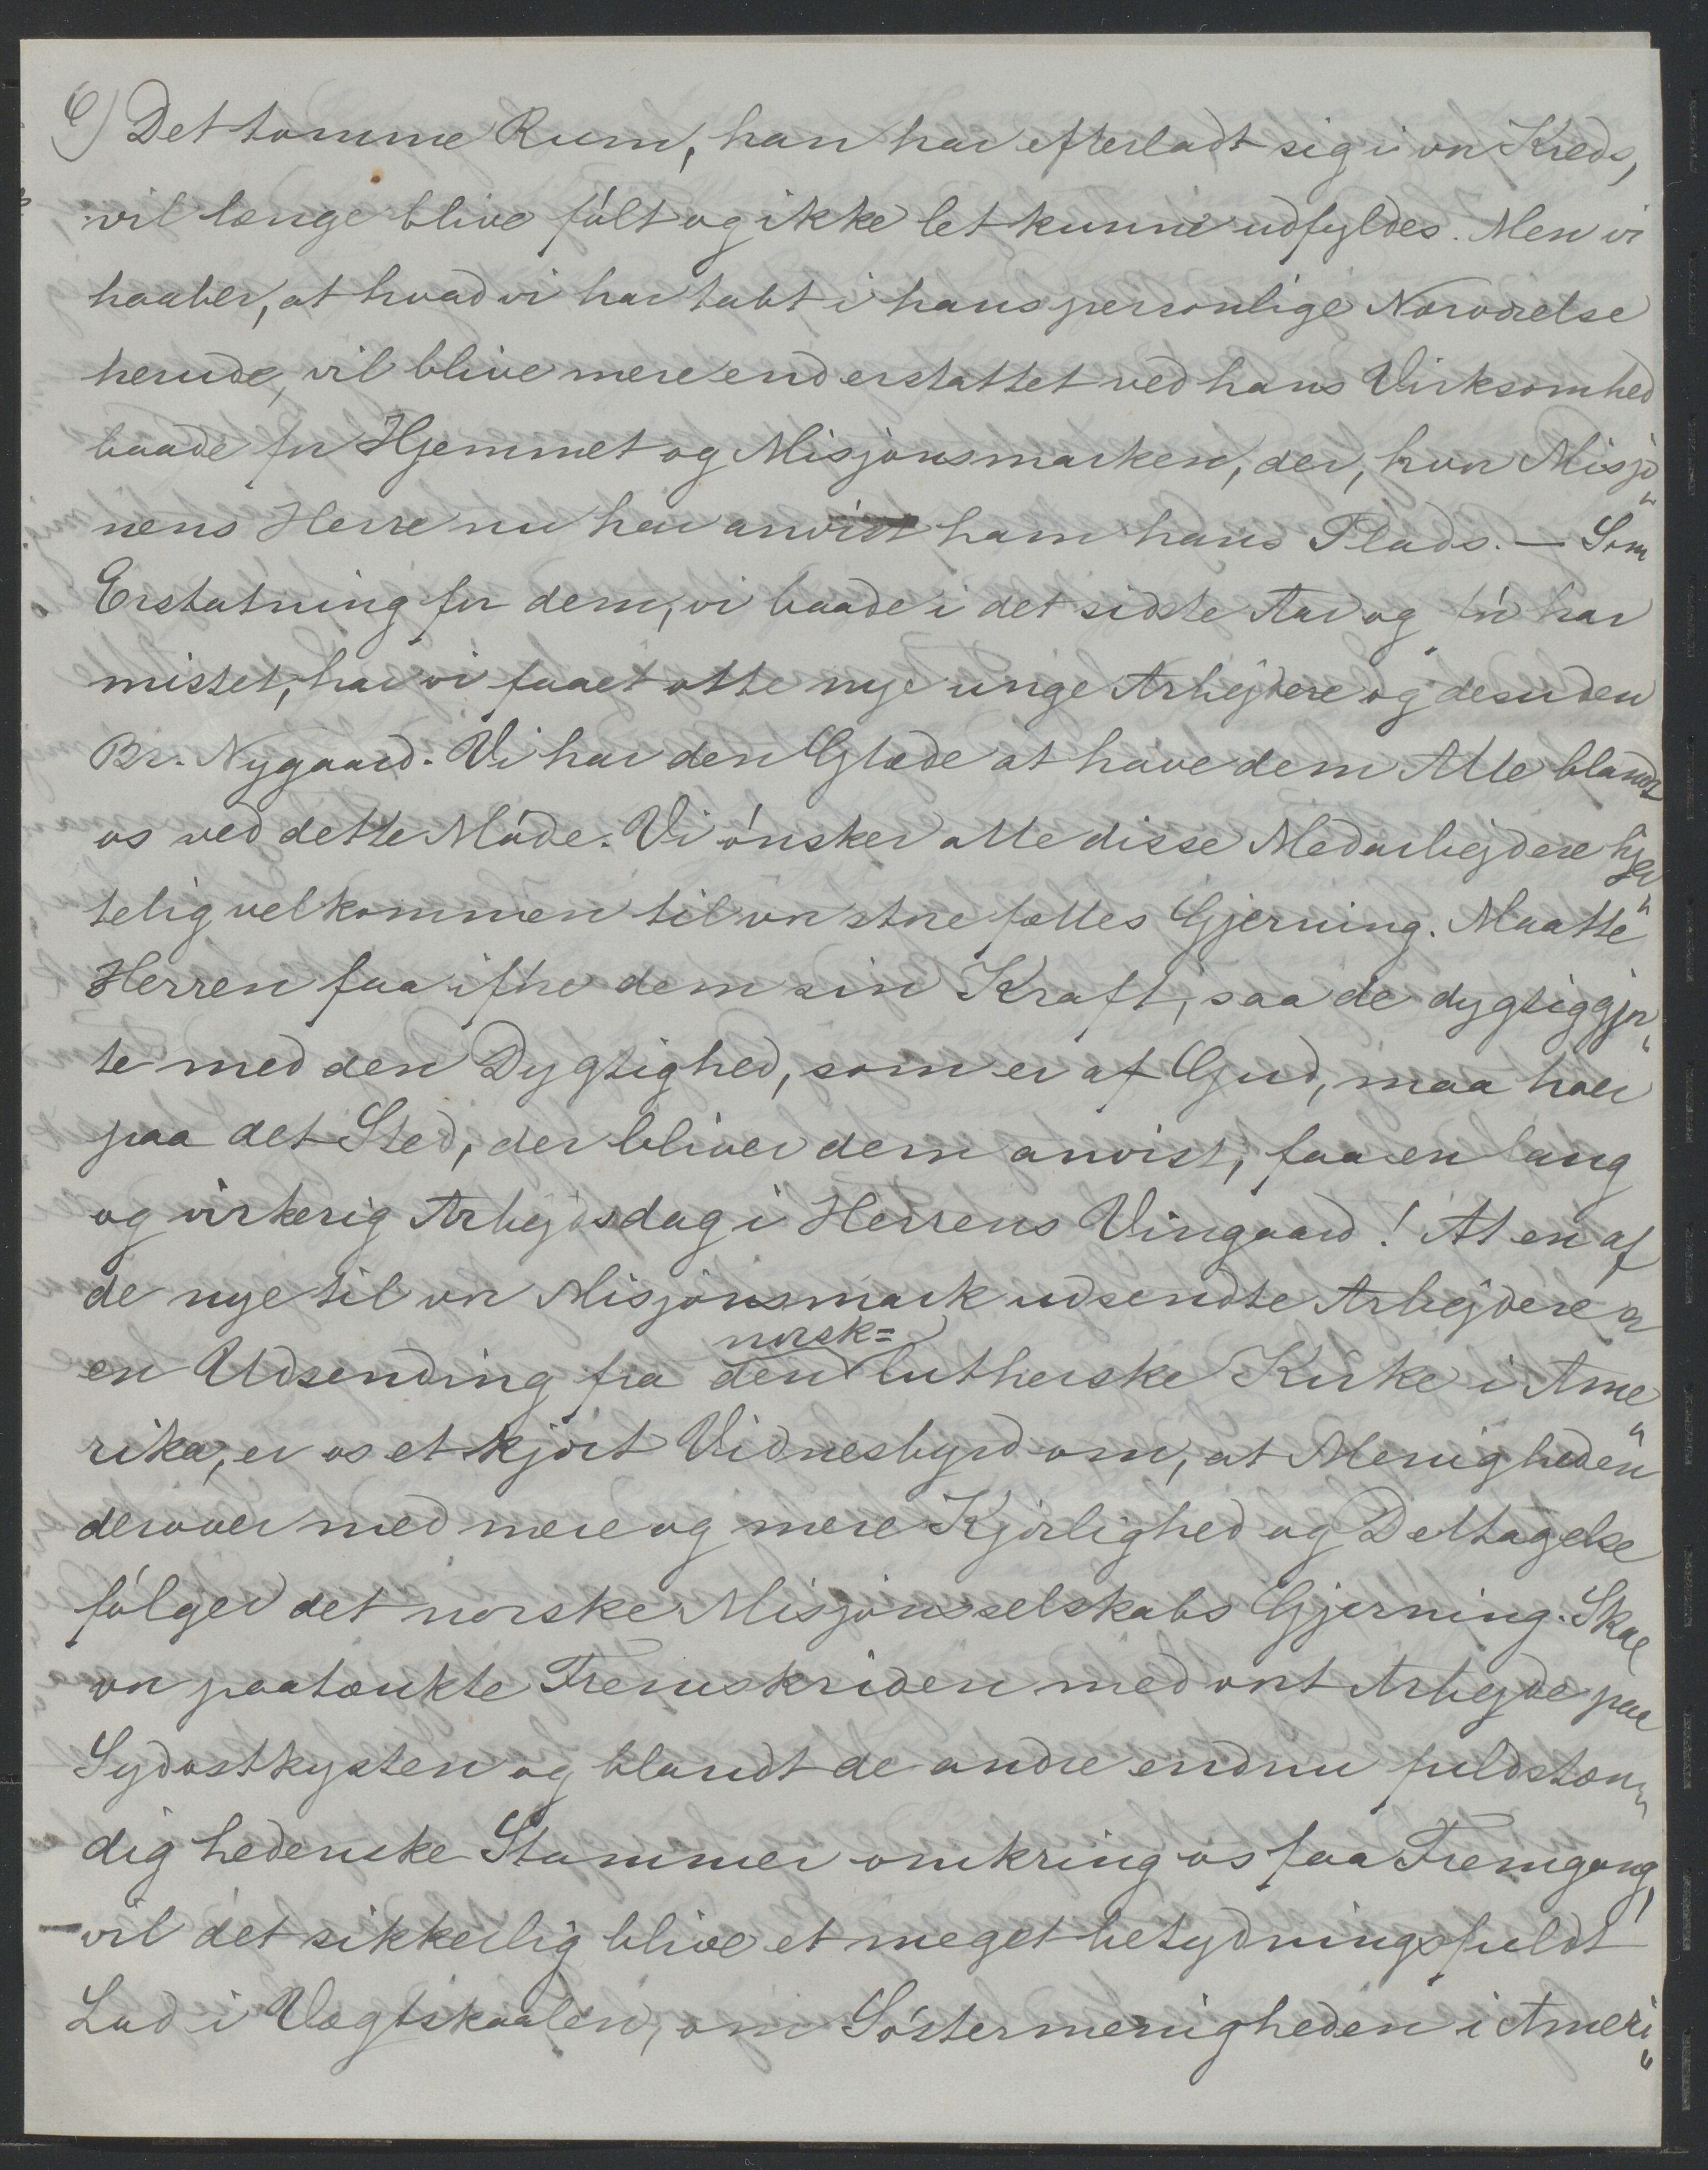 6) Det tomme Rum, han har efterladt sig i vor Kreds,
vil længe blive følt og ikke let kunne udfyldes. Men vi
haaber, at hvad vi har tabt i hans personlige Nærværelse
herude, vil blive mere end erstattet ved hans Virksomhed
baade for Hjemmet og Misjonsmarken, der, hvor Misjo„
nens Herre nu har anvist ham hans Plads. — Som
Erstatning for dem, vi baade i det sidste Aar og før har
mistet, har vi faaet otte nye unge Arbejdere og desuden
Br. Nygaard. Vi har den Glæde at have dem Alle blandt
os ved dette Møde. Vi ønsker alle disse Medarbejdere hjer„
telig velkommen til vor store fælles Gjerning. Maatte
Herren faa iføre dem sin Kraft, saa de dygtiggjor„
te med den Dygtighed, som er af Gud, maa hver
paa det Sted, der bliver dem anvist, faa en lang
og virkerig Arbejdsdag i Herrens Vingaard! At en af
de nye til vor Misjonsmark udsendte Arbejdere er
norsk=
en Udsending fra den lutherske Kirke i Ame„
rika, er os et kjært Vidnesbyrd om, at Menigheden
derover med mere og mere Kjærlighed og Deltagelse
følger det norske Misjonsselskabs Gjerning. Skal
vor paatænkte Fremskriden med vort Arbejde paa
Sydostkysten og blandt de andre endnu fuldstæn„
dig hedenske Stammer omkring os faa Fremgang,
vil det sikkerlig blive et meget betydningsfuldt
Lod i Vægtskaalen, om Søstermenigheden i Ameri„